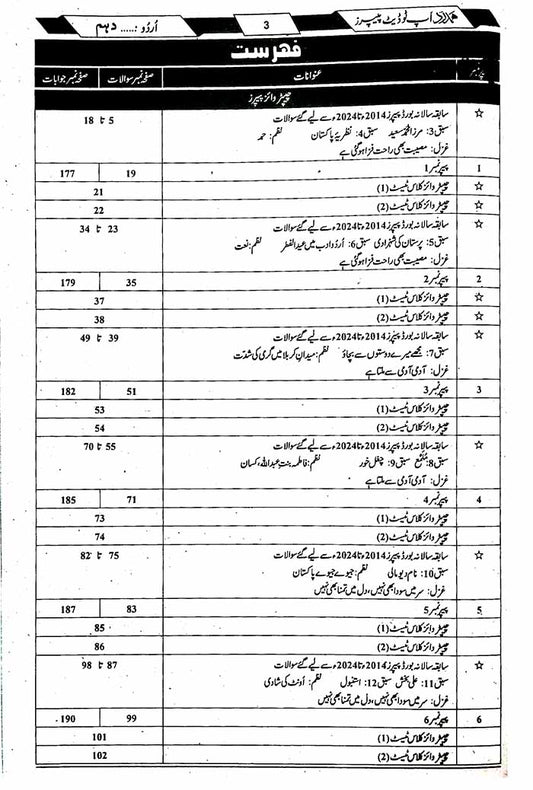 ہمدرد اَپ ٹوڈیٹ پیپرز 3 اُردو:..... دہم
فہرست
پیپر نمبر عنوانات صفحہ نمبر سوالات صفحہ نمبر جوابات
چیپٹر وائز پیپرز
☆ سابقہ سالانہ بورڈ پیپرز 2014ء تا 2024ء سے لیے گئے سوالات 5 تا 18
سبق3: مرزا محمد سعید سبق4: نظریۂ پاکستان نظم: حمد
غزل: مصیبت بھی راحت فزا ہو گئی ہے
1 پیپر نمبر 1 19 177
☆ چیپٹر وائز کلاس ٹیسٹ (1) 21
☆ چیپٹر وائز کلاس ٹیسٹ (2) 22
☆ سابقہ سالانہ بورڈ پیپرز 2014ء تا 2024ء سے لیے گئے سوالات 23 تا 34
سبق5: پرستان کی شہزادی سبق6: اُردو ادب میں عیدالفطر نظم: نعت
غزل: مصیبت بھی راحت فزا ہو گئی ہے
2 پیپر نمبر 2 35 179
☆ چیپٹر وائز کلاس ٹیسٹ (1) 37
☆ چیپٹر وائز کلاس ٹیسٹ (2) 38
☆ سابقہ سالانہ بورڈ پیپرز 2014ء تا 2024ء سے لیے گئے سوالات 39 تا 49
سبق7: مجھے میرے دوستوں سے بچاؤ نظم: میدانِ کربلا میں گرمی کی شدّت
غزل: آدمی آدمی سے ملتا ہے
3 پیپر نمبر 3 51 182
چیپٹر وائز کلاس ٹیسٹ (1) 53
چیپٹر وائز کلاس ٹیسٹ (2) 54
☆ سابقہ سالانہ بورڈ پیپرز 2014ء تا 2024ء سے لیے گئے سوالات 55 تا 70
سبق8: مُلمّع سبق9: چغل خور نظم: فاطمہ بنت عبداللہ، کسان
غزل: آدمی آدمی سے ملتا ہے
4 پیپر نمبر 4 71 185
چیپٹر وائز کلاس ٹیسٹ (1) 73
چیپٹر وائز کلاس ٹیسٹ (2) 74
☆ سابقہ سالانہ بورڈ پیپرز 2014ء تا 2024ء سے لیے گئے سوالات 75 تا 82
سبق10: نام دیو مالی نظم: جیوے جیوے پاکستان
غزل: سر میں سودا بھی نہیں، دل میں تمنا بھی نہیں
5 پیپر نمبر 5 83 187
چیپٹر وائز کلاس ٹیسٹ (1) 85
چیپٹر وائز کلاس ٹیسٹ (2) 86
☆ سابقہ سالانہ بورڈ پیپرز 2014ء تا 2024ء سے لیے گئے سوالات 87 تا 98
سبق11: علی بخش سبق12: استنبول نظم: اُونٹ کی شادی
غزل: سر میں سودا بھی نہیں، دل میں تمنا بھی نہیں
6 پیپر نمبر 6 99 190
چیپٹر وائز کلاس ٹیسٹ (1) 101
چیپٹر وائز کلاس ٹیسٹ (2) 102